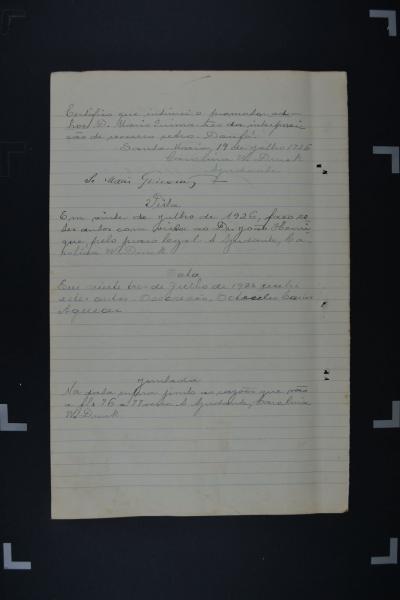 Certifico que intimei o promotor ad-
hoc D. Mario Guima-rães da interposi
ção de recurso retro. Doufé.
Santa Maria, 19 de julho 1926
Carolina W. Druck
Ajudante
Mario
Vista
Em vinte de julho de 1926, faço es
tes autos com vista ao Dr. João Henri
que, pelo prazo legal. A Ajudante, Ca
rolina W. Druck
Data
Em vinte tres de Julho de 1926 recebi
estes autos. O escrivão,
Juntada
Na data supra junto as razões que vão
a fls 76 a 77 verso A Ajudante, Carolina
W. Druck